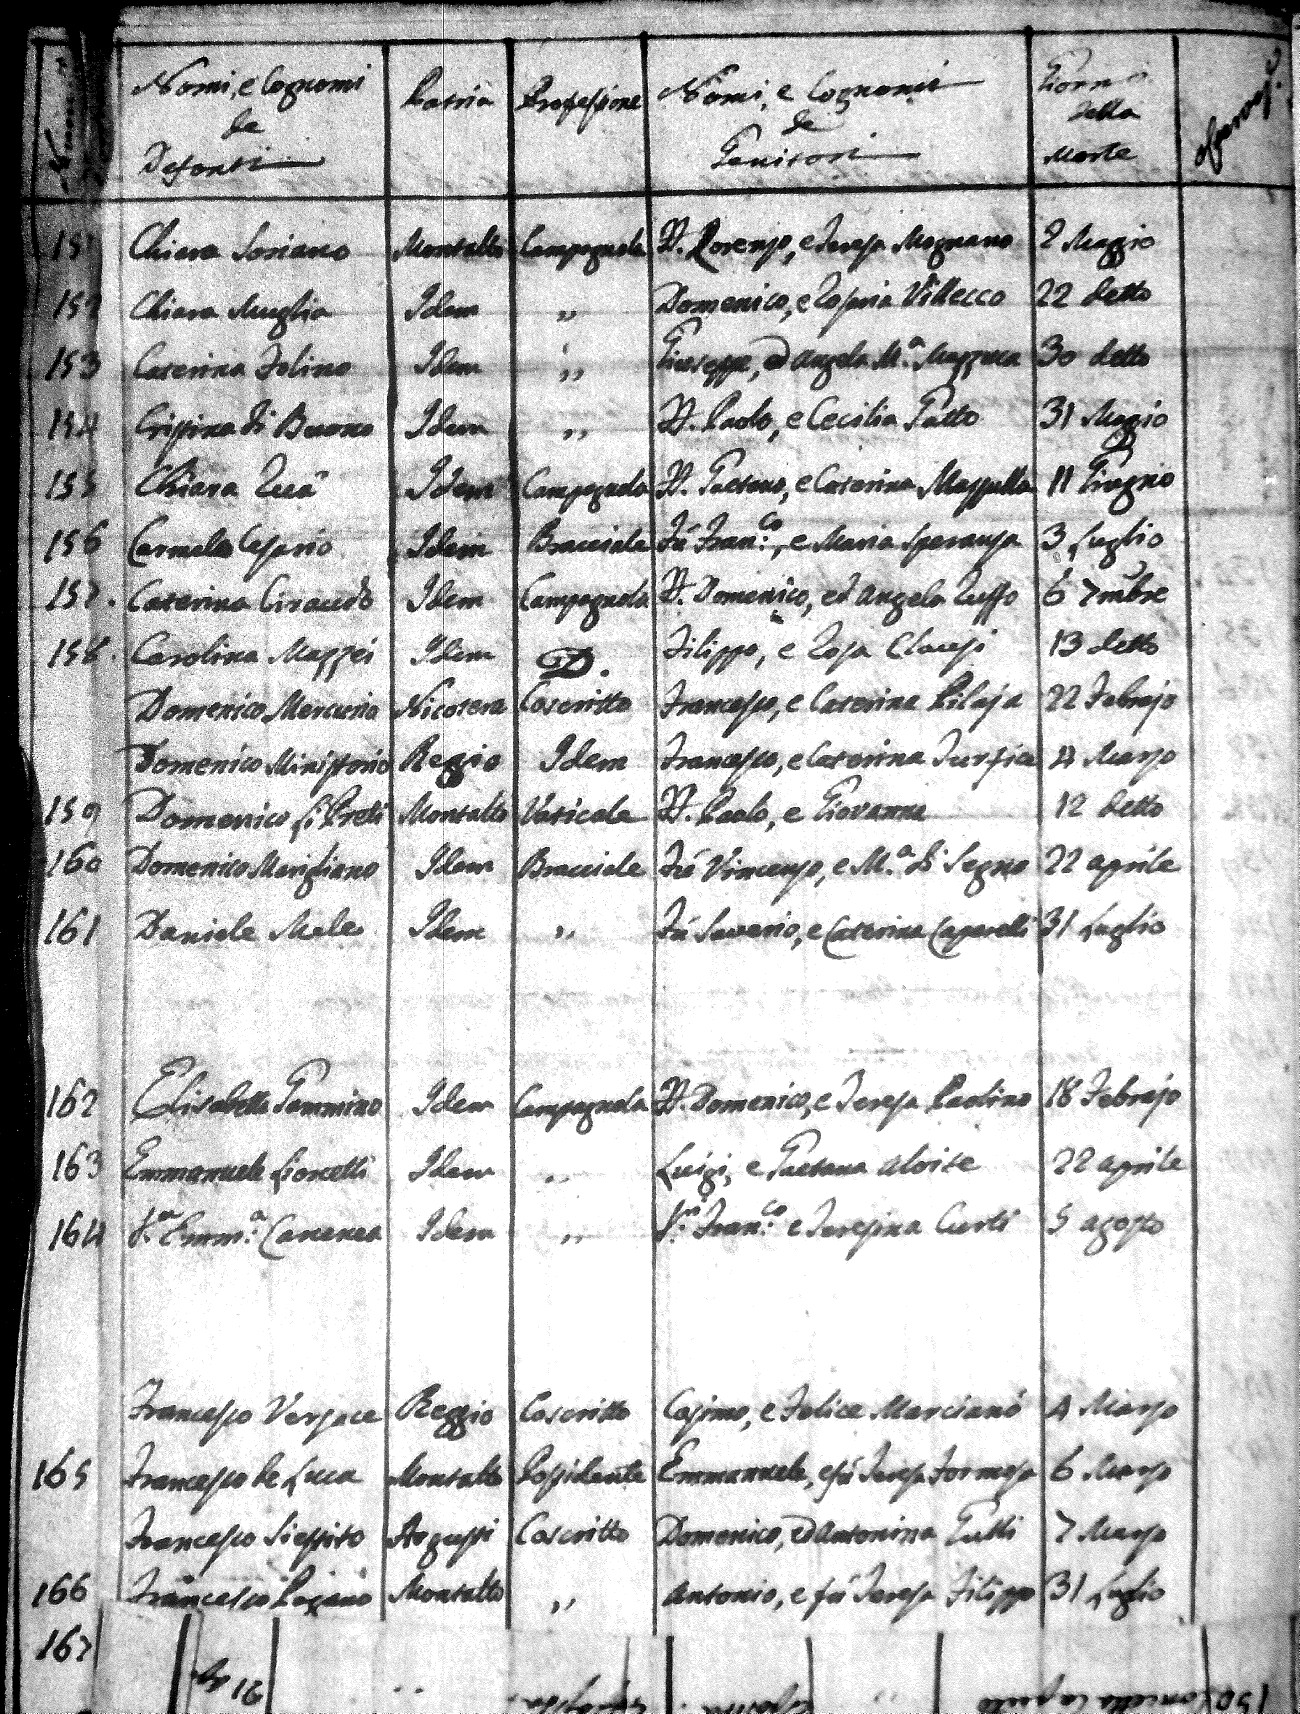 Nomi, e Cognomi de Defonti Patria Professione Nomi, e Cognomi de Genitori Giorni della Morte
151 Chiara Soriano Montalto Campagnola D. Lorenzo, e Teresa Mognano 2 Maggio
152 Chiara Muglia Idem " Domenico, e Rosaria Villecco 22 detto
153 Caterina Folino Idem " Giuseppe, ed Angela M.ª Mazzuca 30 detto
154 Crispina di Buono Idem " D. Paolo, e Cecilia Gatto 31 Maggio
155 Chiara Idem Campagnola D. Gaetano, e Caterina Mazzulla 11 Giugno
156 Carmela Cesario Idem Bracciale Fù Fran.co, e Maria Speranza 3 Luglio
157. Caterina Ciraudo Idem Campagnola D. Domenico, ed Angela Ruffo 6 7mbre
158. Carolina Mazzei Idem D. Filippo, e Rosa 13 detto
Domenico Mercurio Nicotera Coscritto Francesco, e Caterina Pilaja 22 Febrajo
Domenico Ministerio Reggio Idem Francesco, e Caterina 4 Marzo
159 Domenico li Preti Montalto Vaticale D. Paolo, e Giovanna 12 detto
160 Domenico Marigliano Idem Bracciale Fù Vincenzo, e M.ª di Segno 22 aprile
161 Daniele Mele Idem " Fù Saverio, e Caterina Caparelli 31 Luglio
162 Elisabetta Gammino Idem Campagnola D. Domenico, e Teresa Paolino 18 Febrajo
163 Emmanuele Lioncelli Idem " Luigi, e Gaetana Aloise 22 aprile
164 S.ra Emm.ª Cananea Idem " S.r Fran.co e Teresina Curti 5 agosto
Francesco Versace Reggio Coscritto Cosimo, e Felice Marcianò 4 Marzo
165 Francesco de Luca Montalto Possidente Emmanuele, e fù Teresa Formosa 6 Marzo
Francesco Coscritto Domenico, ed Antonina Gulli 7 Marzo
166 Francesco Pagano Montalto " Antonio, e fù Teresa Filippo 31 Luglio
167